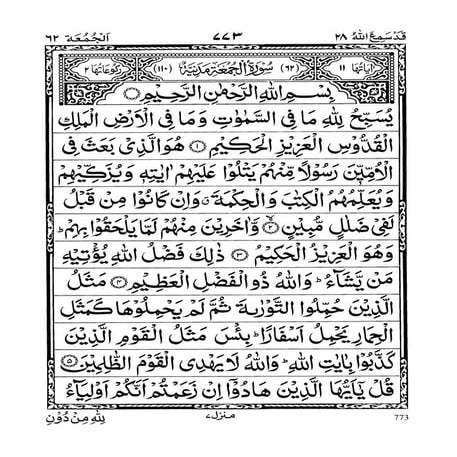 قَدْ سَمِعَ اللّٰهُ ٢٨ ٧٧٣ اَلْجُمُعَة ٦٢
اٰيَاتُهَا ١١ (٦٢) سُوْرَةُ الْجُمُعَةِ مَدَنِيَّةٌ (١١٠) رُكُوْعَاتُهَا ٢
بِسْمِ اللّٰهِ الرَّحْمٰنِ الرَّحِيْمِ
يُسَبِّحُ لِلّٰهِ مَا فِى السَّمٰوٰتِ وَمَا فِى الْاَرْضِ الْمَلِكِ
الْقُدُّوْسِ الْعَزِيْزِ الْحَكِيْمِ ١ هُوَ الَّذِىْ بَعَثَ فِى
الْاُمِّيّٖنَ رَسُوْلًا مِّنْهُمْ يَتْلُوْا عَلَيْهِمْ اٰيٰتِهٖ وَيُزَكِّيْهِمْ
وَيُعَلِّمُهُمُ الْكِتٰبَ وَالْحِكْمَةَ ۗ وَاِنْ كَانُوْا مِنْ قَبْلُ
لَفِىْ ضَلٰلٍ مُّبِيْنٍ ٢ وَّاٰخَرِيْنَ مِنْهُمْ لَمَّا يَلْحَقُوْا بِهِمْ ؕ
وَهُوَ الْعَزِيْزُ الْحَكِيْمُ ٣ ذٰلِكَ فَضْلُ اللّٰهِ يُؤْتِيْهِ
مَنْ يَّشَآءُ ؕ وَاللّٰهُ ذُو الْفَضْلِ الْعَظِيْمِ ٤ مَثَلُ
الَّذِيْنَ حُمِّلُوا التَّوْرٰىةَ ثُمَّ لَمْ يَحْمِلُوْهَا كَمَثَلِ
الْحِمَارِ يَحْمِلُ اَسْفَارًا ؕ بِئْسَ مَثَلُ الْقَوْمِ الَّذِيْنَ
كَذَّبُوْا بِاٰيٰتِ اللّٰهِ ؕ وَاللّٰهُ لَا يَهْدِى الْقَوْمَ الظّٰلِمِيْنَ ٥
قُلْ يٰٓاَيُّهَا الَّذِيْنَ هَادُوْٓا اِنْ زَعَمْتُمْ اَنَّكُمْ اَوْلِيَآءُ
لِلّٰهِ مِنْ دُوْنِ
منزل ٧
773